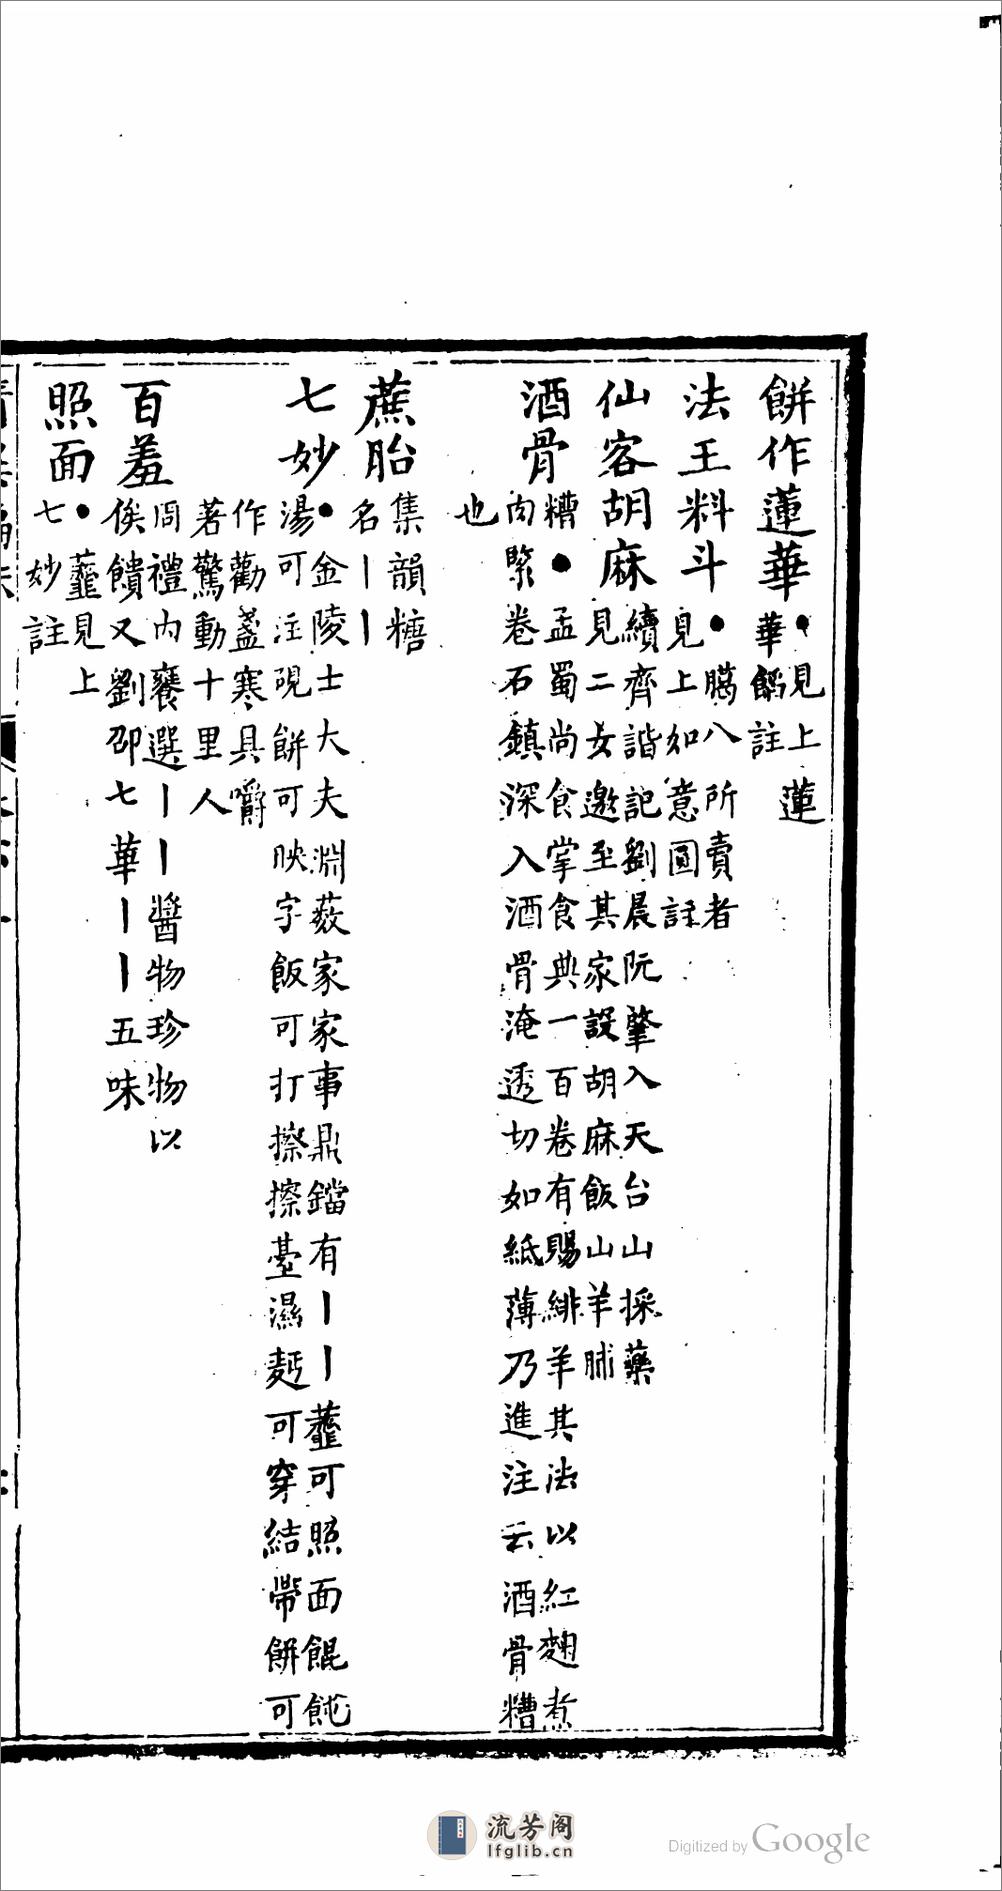 餅作蓮華●見上蓮
華餡註
法王料斗●臈八所賣者
見上如意圓註
仙客胡麻續齊諧記劉晨阮肇入天台山採藥
見二女邀至其家設胡麻飯山羊脯
酒骨糟●孟蜀尚食掌食典一百卷有賜緋羊其法以紅麯煮
肉緊卷石鎮深入酒骨淹透切如紙薄乃進注云酒骨糟
也
蔗胎集韻糖
名丨丨
七妙●金陵士大夫淵薮家家事鼎鐺有丨丨虀可照面餛飩
湯可注硯餅可映字飯可打擦擦臺濕麪可穿結帶餅可
作勸盞寒具嚼
著驚動十里人
百羞周禮内饔選丨丨醬物珍物以
俟饋又劉邵七華丨丨五味
照面●虀見上
七妙註
流芳阁
lfglib.cn
Digitized by Google